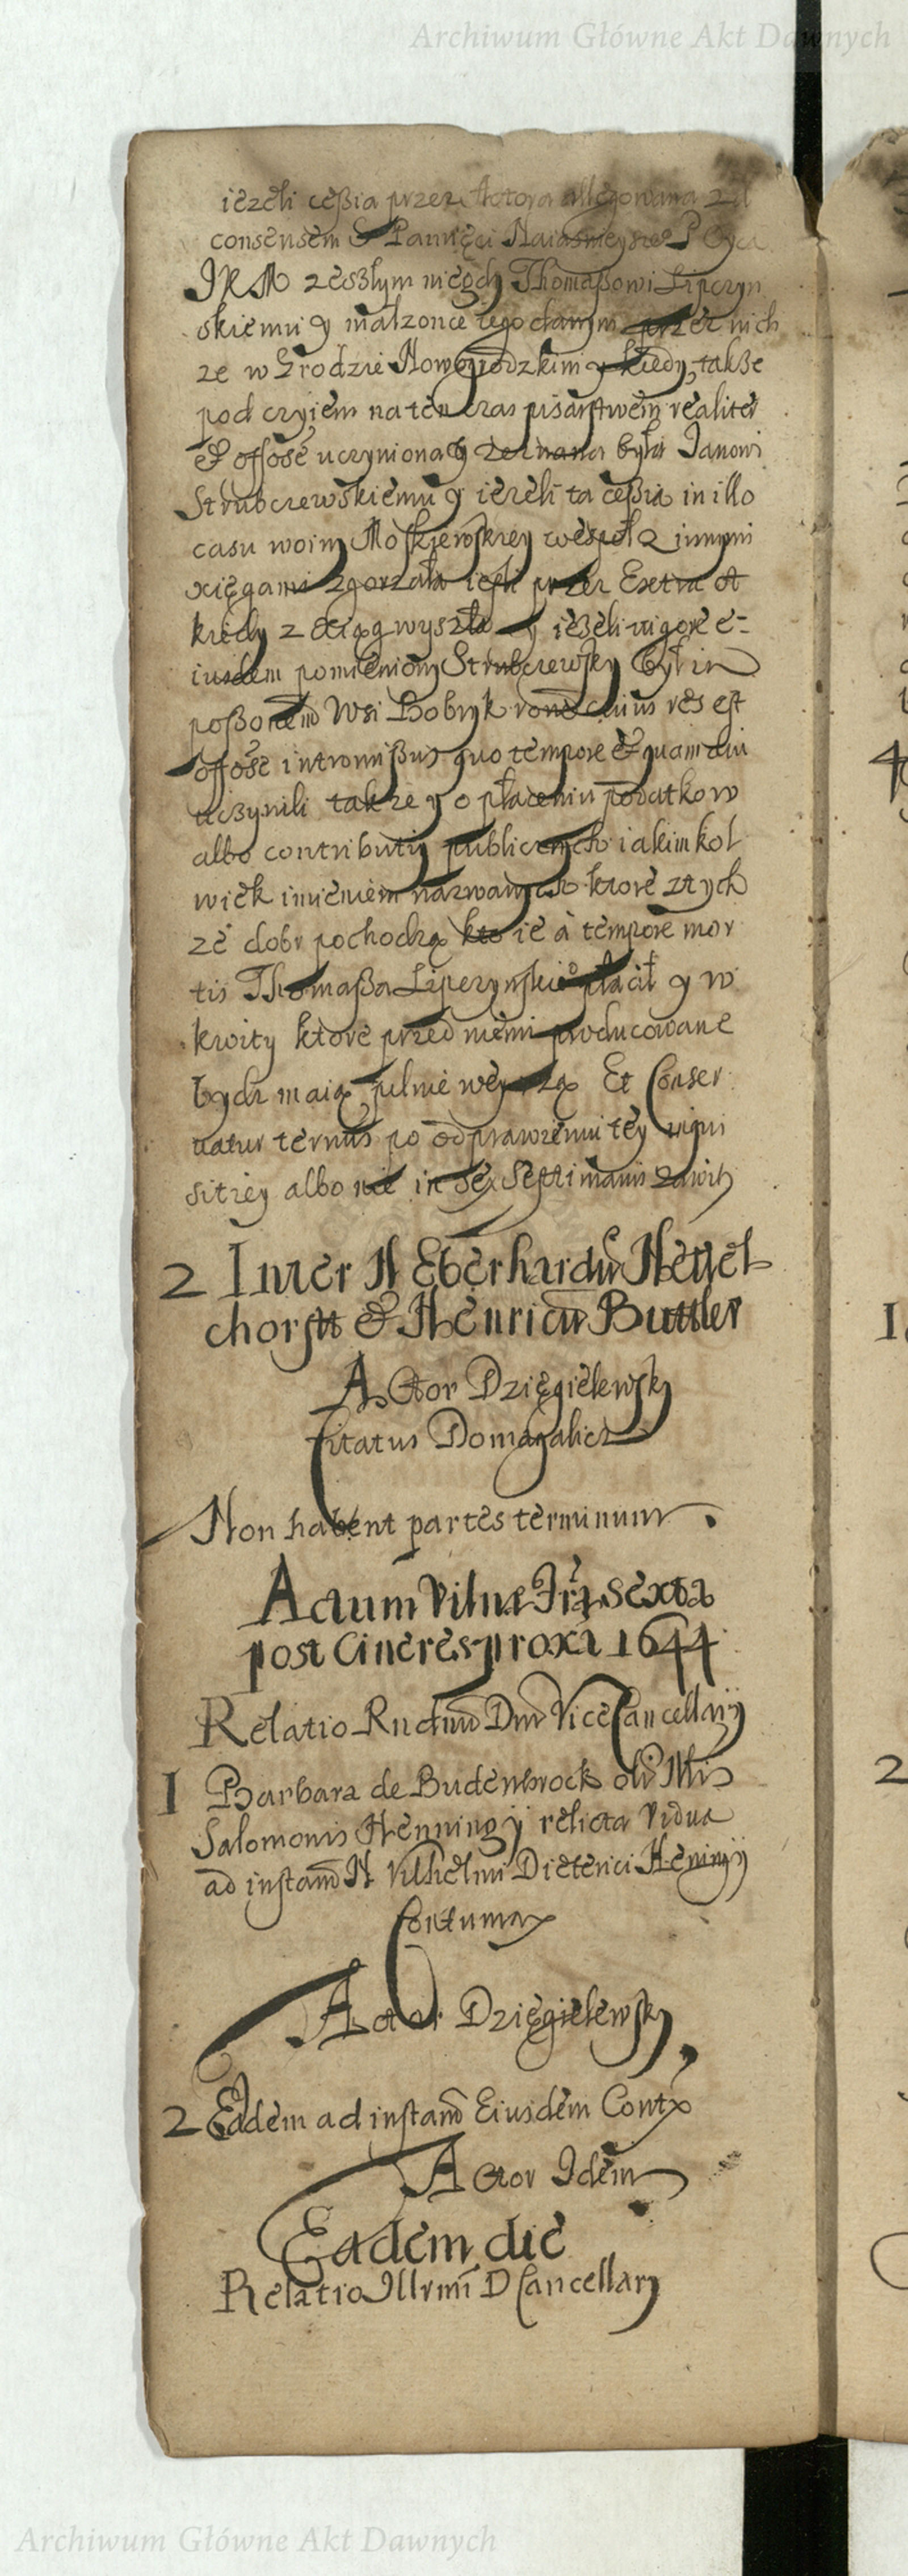 Archiwum Główne Akt Dawnych
ieżeli ceßia przez Aktora allegowana za
consensem S Pamięci Naiasnieyszeo P Oyca
JKM zeszłym niegdy Thomaßowi Lipczyn
skiemu y małzonce iego danym przez nich
ze w Grodzie Nowogrodzkim y kiedy, takße
pod czyiem na ten czas pisarstwem realiter
et offose uczyniona y zeznana była Janowi
Strubczewskiemu y ieżeli ta ceßia in illo
casu woiny Moskiewskiey wespoł z innymi
xięgami zgorzała iesli przez Extract
kiedy z Xiąg wyszła y ieżeli vigore e-
iusdem pomieniony Strubczewsky był in
poßonem Wsi Bobryk rone cuius res est
offose intromißus quo tempore et quam diu
uczynili także y o płaceniu podatkow
albo contributiy publicznych iakimkol
wiek imieniem nazwanych ktore z tych
ze dobr pochodzą kto ie à tempore mor
tis Thomaßa Lipczynskieo płacił y w
kwity ktore przed niemi producowane
bydz maią pilnie weyrzą Et Conser
uatur ternus po odprawieniu tey inqui
sitiey albo nie in sex Septimanis zawity
2 Inter N Eberhardu Mettel
chorst & Henricu Buttler
Actor Dzięgielewsky
Citatus Domagalicz
Non habent partes terminum
Actum Vilnæ Fria sexta
post Cineres proxa 1644
Relatio Rndmi Dni ViceCancellarij
1 Barbara de Budenbrock oli Mis
Salomonis Henningij relicta Vidua
ad instam N Vilhelmi Dieterici Heningij
Contumax
Actor Dzięgielewsky
2 Eadem ad instam Eiusdem Contx
Actor Idem
Eadem die
Relatio Illrmi D Cancellary
Archiwum Główne Akt Dawnych